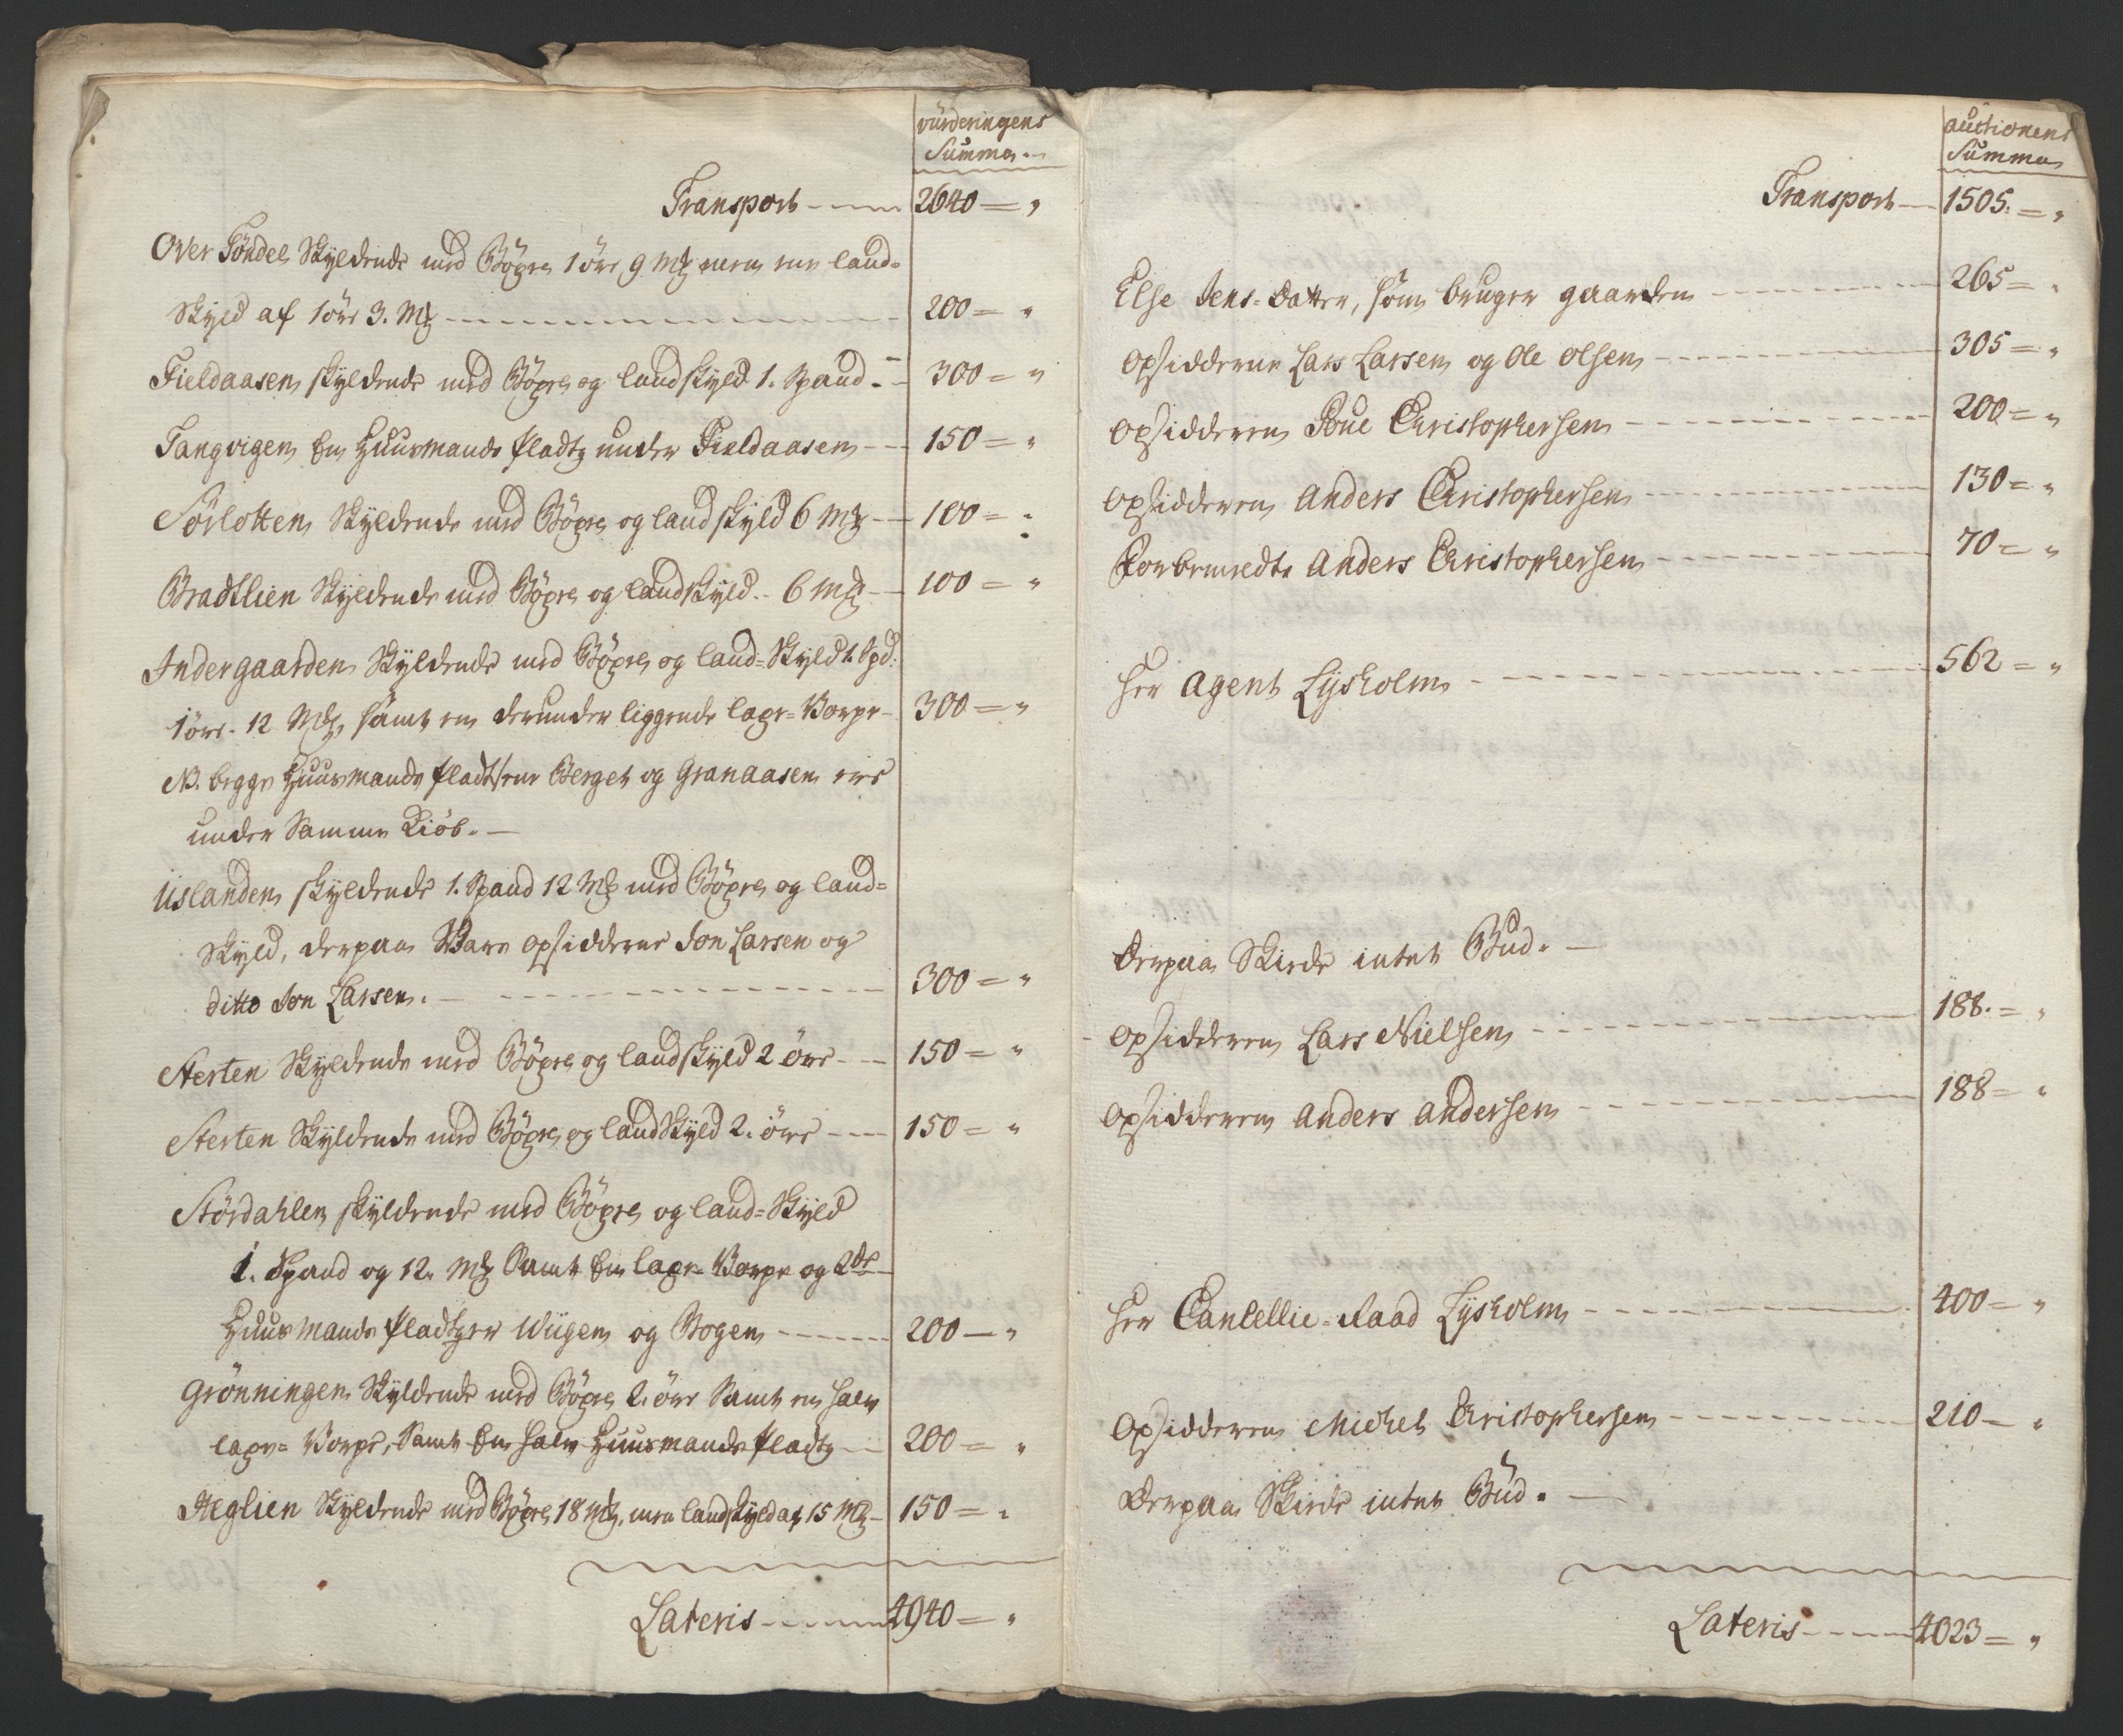 vürderingens
Summa.
Transport 2640 = "
Over Tøndel Skyldende med Böxel 1 öre, 9 Mk men en land-
Skyld af 1 öre 3. Mk 200 = "
Fieldaasen skyldende med Böxel og landskyld 1. Spand. 300 = "
Tangvigen En Huusmands Pladtz under Fieldaasen 150 = "
Sörlotten Skyldende med Böxel og landskyld 6 Mk 100 = "
Bradtlien Skyldende med Böxel og landskyld 6 Mk 100 = "
Indergaarden Skyldende med Böxel og land-Skyld 1. Spd:
1 öre 12 Mk, samt en derunder liggende laxe-Vorpe 300 = "
NB. begge Huusmands Pladtsene Berget og Granaasen ere
under Samme Kiöb.
Uslanden skyldende 1. Spand 12 Mk med Böxel og land-
Skyld, derpaa Vare opsidderne Jon Larsen og
ditto Jon Larsen. 300 = "
Sterten Skyldende med Böxel og landskyld 2 öre 150 = "
Sterten Skyldende med Böxel og landSkyld 2. öre 150 = "
Stördahlen skyldende med Böxel og land-Skyld
1. Spand og 12. Mk Samt En laxe-Vorpe og 2de
Huusmands Pladtzer Wiigen og Bogen 200 = "
Grönningen Skyldende med Böxel 2. öre Samt en halv
laxe-Vorpe, Samt En halv Huusmands Pladtz 200 = "
Heglien Skyldende med Böxel 18 Mk, men landskyld af 15 Mk 150 = "
Lateris 4940 = "
auctionens
Summa
Transport 1505. = "
Else Jens-Datter, som bruger gaarden 265 = "
opsidderne Lars Larsen og Ole Olsen 305 = "
opsidderen Poue Christophersen 200 = "
opsidderen Anders Christophersen 130 = "
Forbemeldte Anders Christophersen 70 = "
Herr Agent Lysholm 562 = "
Derpaa Skeede intet Bud.
opsidderen Lars Nielsen 188. = "
opsidderen Anders Andersen 188 = "
Herr Cancellie-Raad Lysholm 400 = "
Opsidderen Michel Christophersen 210 = "
Derpaa Skeede intet Bud.
Lateris 4023 = "